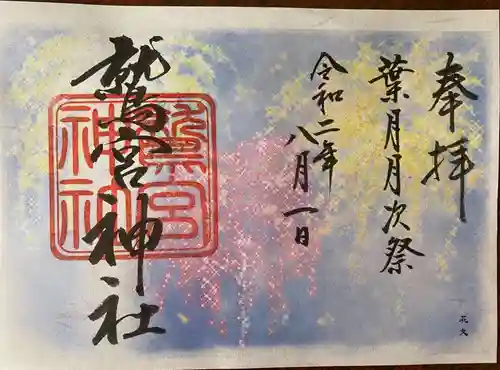 奉拝
葉月月次祭
令和二年
八月一日
鷲宮神社
鷲宮
神社
花文